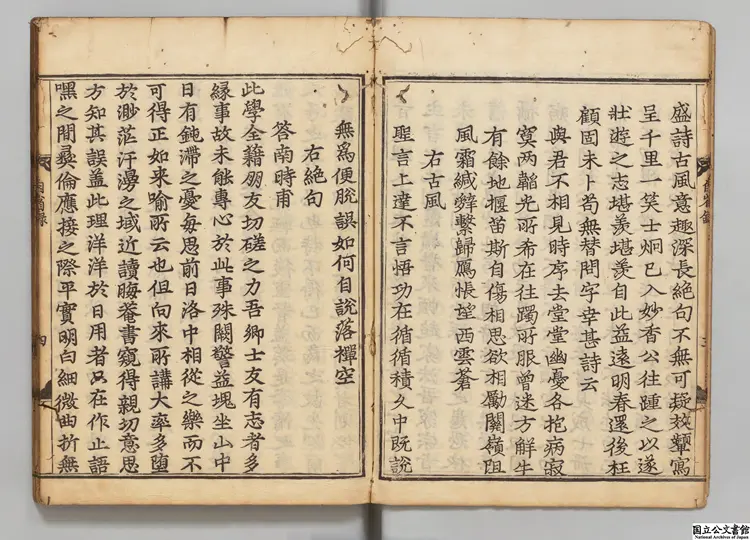 盛詩古風意趣深長絶句不無可疑效顰寫
呈千里一笑士烱已入妙香公往踵之以遂
壯遊之志堪羨堪羨自此益遠明春還後枉
顧固未卜苟無替問字幸甚詩云
與君不相見時序去堂堂幽憂各抱病寂
寞兩韜光所希在往躅所服曾迷方解牛
有餘地揠苗斯自傷相思欲相勵關嶺阻
風霜緘辭繫歸鴈悵望西雲蒼
右古風
聖言上達不言悟功在循循積久中既說
無爲便脫誤如何自說落禪空
右絶句
答南時甫
此學全籍朋友切磋之力吾鄉士友有志者多
縁事故未能專心於此事殊闕警益塊坐山中
日有鈍滯之憂每思前日洛中相從之樂而不
可得正如来喻所云也但向來所講大率多墮
於渺茫汗漫之域近讀晦菴書窺得親切意思
方知其誤蓋此理洋洋於日用者只在作止語
嘿之間彛倫應接之際平實明白細微曲折無
自省錄
四
国立公文書館
National Archives of Japan